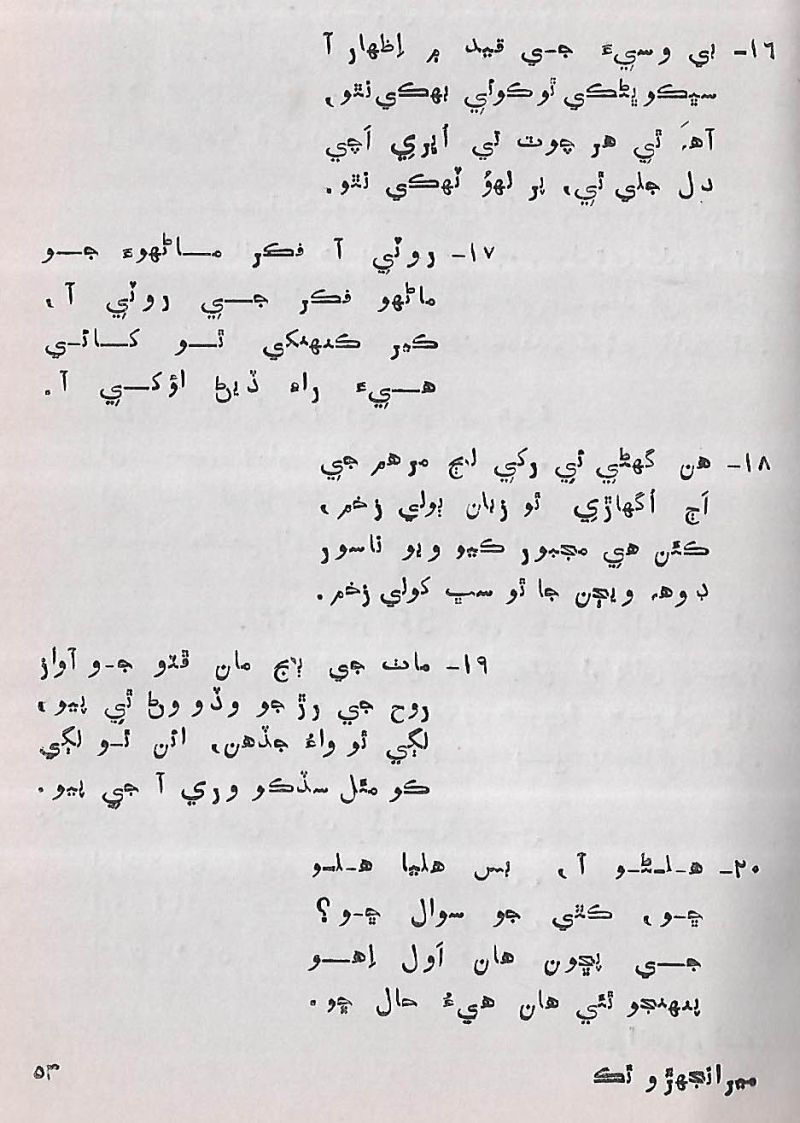 ۱۶- بي وسيءَ جي قيد ۾ اِظهار آ
سڀڪو ڀڻڪي ٿو ڪوئي ٻهڪي نٿو،
آهہَ ٿي هر چوٽ ئي اُڀري اَچي
دل جلي ٿي، پر لهوُ ٽهڪي نٿو.
۱۷- روٽي آ فڪر ماڻهوءَ جو
ماڻهو فڪر جي روٽي آ،
ڪير ڪنهنکي ٿو کائي
هيءَ راه ڏيڻ اؤکي آ.
۱۸- هن گهڻي ئي رکي لڄ مرهم جي
اَڄ اُگهاڙي ٿو زبان ٻولي زخم،
ڪئن هي مجبور ڪيو ويو ناسور
ڊوهہ ويڄن جا ٿو سڀ کولي زخم.
۱۹- ماٺ جي ٻج مان ڦٽو جو آواز
روح جي رڙ جو وڏو وڻ ٿي پيو،
لڳي ٿو واءُ جڏهن، ائن ٿو لڳي
ڪو مئل سڏڪو وري آ جي پيو.
۲۰- هلڻو آ، بس هليا هلو
ڇو، ڪٿي جو سوال ڇو؟
جي پڇون هان اَول اِهو
پنهنجو ئئي هان هيءُ حال ڇو.
مير انجهڙو ٿڪ
۵۳